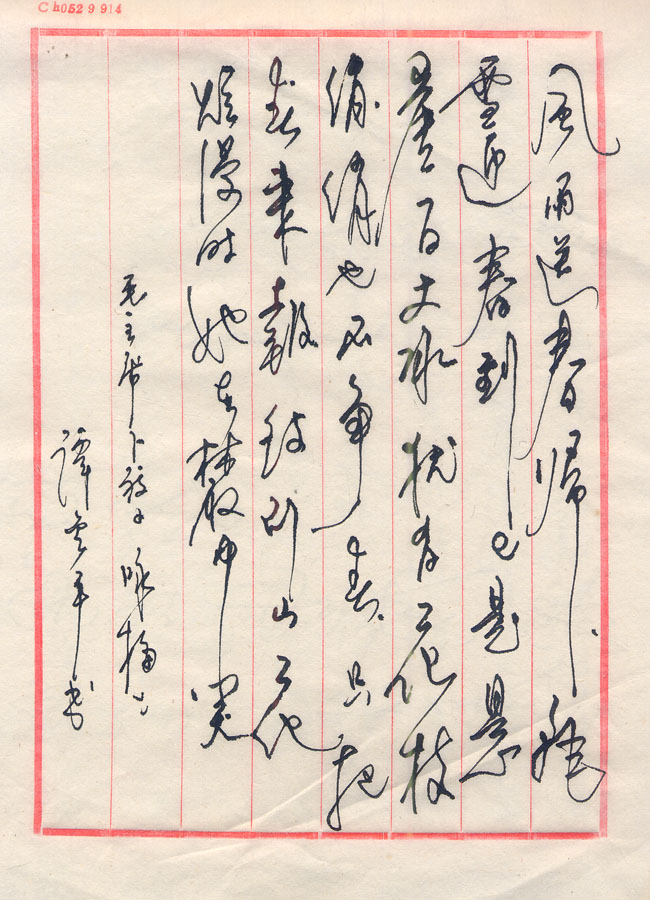 Ch052 9 914
風雨送春歸飛
雪迎春到已是悬
崖百丈冰犹有花枝
俏俏也不争春只把
春来報待到山花
烂漫时她在叢中笑
毛主席卜算子咏梅
譚云平书